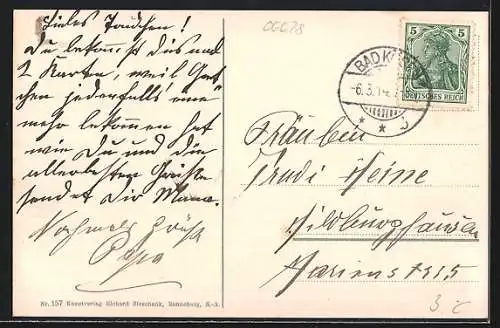 Liebes Traudchen!
Du bekommst dies und
2 Karten, weil Gret
chen jedenfalls eine
mehr bekommen hat
wie Du und die
allerbesten Grüße
sendet Dir Mama.
Nochmals Grüße
Papa
Nr. 157 Kunstverlag Richard Zieschank, Ronneburg, S.-A.
OGG78
5 5
DEUTSCHES REICH
BAD K
-6.3.14.
* * b
Fräulein
Trudi Heine
Hildburghausen
Marienstr 5